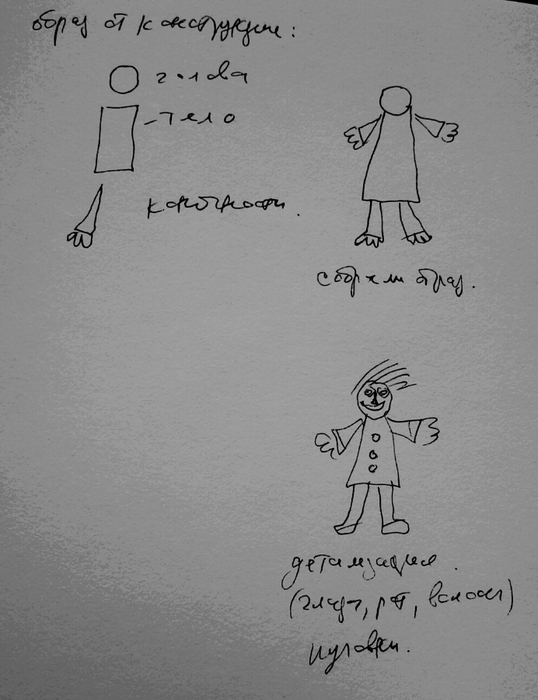 образ от конструкции:
голова
- тело
конечности.
собрали образ.
детализация.
(глаза, рот, волосы)
пуговки.